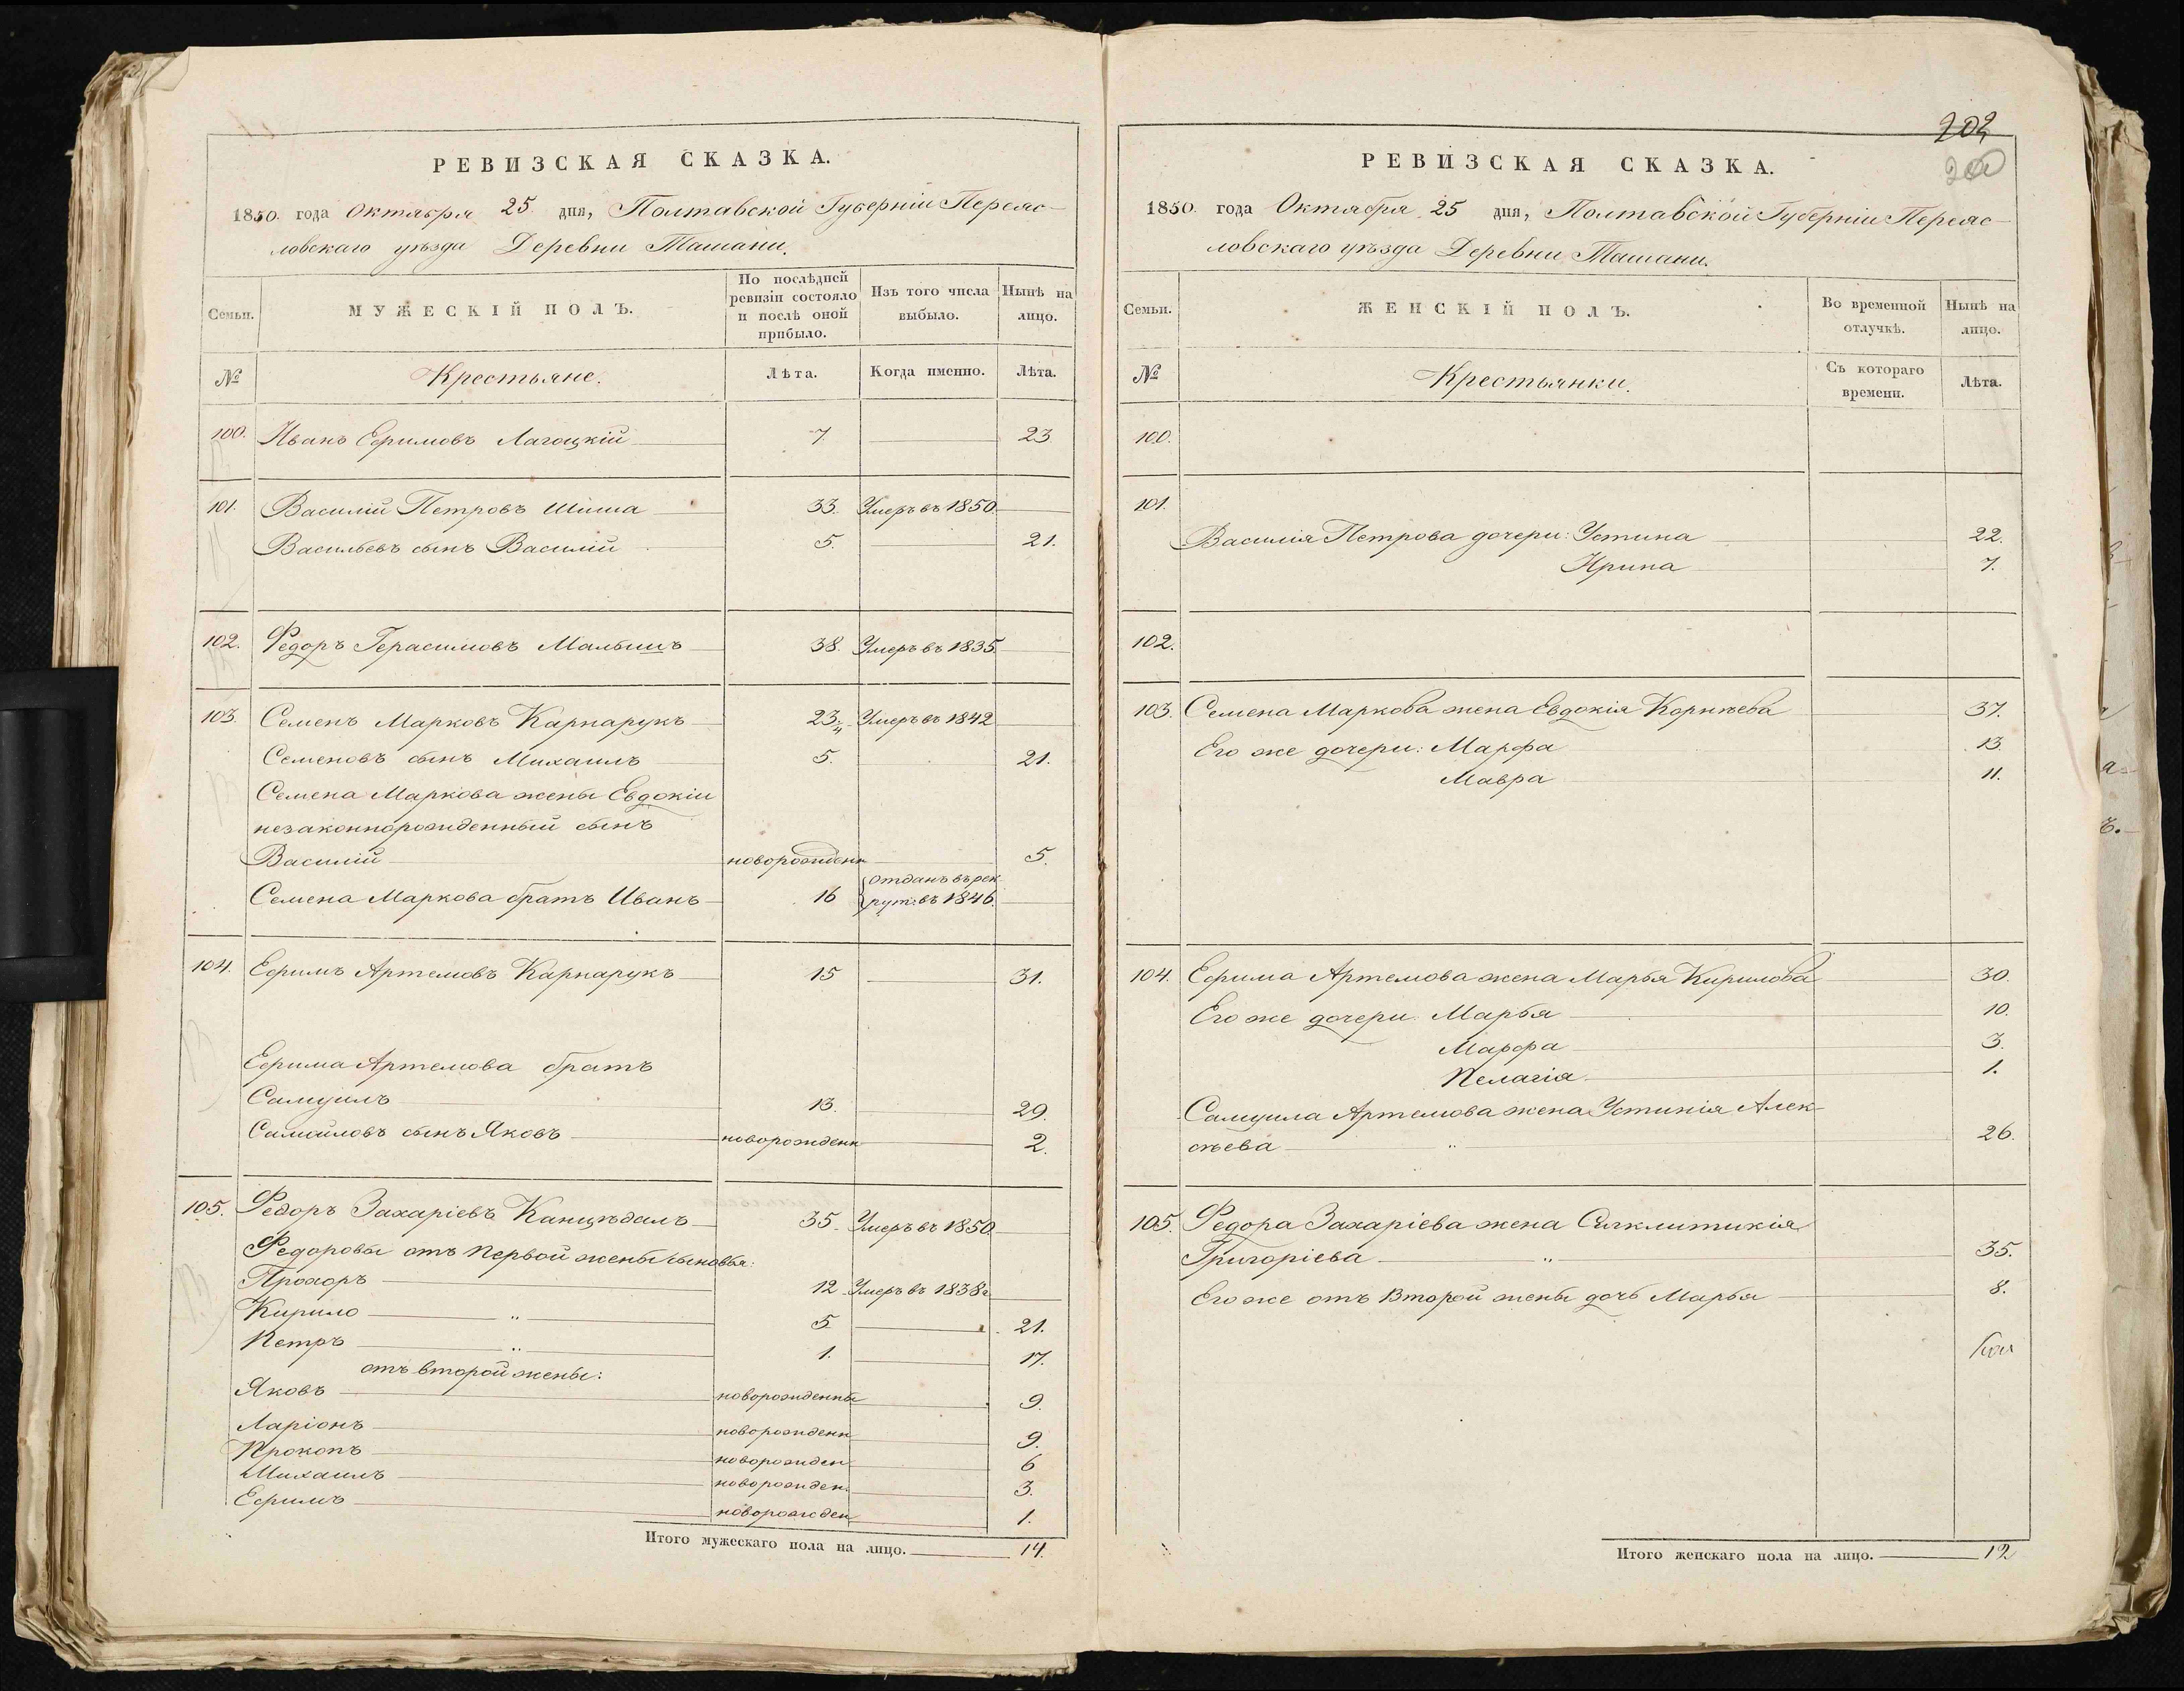 РЕВИЗСКАЯ СКАЗКА.
1850. года Октября 25 дня, Полтавской Губерніи Переяс-
ловскаго уѣзда Деревни Ташани.
Семьи.
МУЖЕСКІЙ ПОЛЪ.
По послѣдней ревизіи состояло и послѣ оной прибыло.
Изъ того числа выбыло.
Нынѣ на лицо.
№ Крестьяне. Лѣта. Когда именно. Лѣта.
100. Иванъ Ефимовъ Лагоцкій 7. 23
101. Василій Петровъ Шіша 33. Умеръ въ 1850.
Васильевъ сынъ Василій 5. 21.
102. Федоръ Герасимовъ Малышъ 38. Умеръ въ 1835.
103. Семенъ Марковъ Карнарукъ 23. Умеръ въ 1842
Семеновъ сынъ Михаилъ 5. 21.
Семена Маркова жены Евдокіи
незаконнорожденный сынъ
Василій новорожденн 5.
Семена Маркова братъ Иванъ 16 отданъ въ рек-
рут: въ 1846.
104. Ефимъ Артемовъ Карнарукъ 15 31.
Ефима Артемова братъ
Самуилъ 13. 29.
Самойловъ сынъ Яковъ новорожденн 2.
105. Федоръ Захаріевъ Канцѣдалъ 35. Умеръ въ 1850
Федоровы отъ первой жены сыновья:
Прохоръ 12. Умеръ въ 1838г
Кирило 5 21.
Петръ 1. 17.
отъ второй жены:
Яковъ новорожденны 9.
Ларіонъ новорожденн 9.
Прокопъ новорожден 6
Михаилъ новорожден. 3.
Ефимъ новорожден 1.
Итого мужескаго пола на лицо. 14.
202
РЕВИЗСКАЯ СКАЗКА.
1850. года Октября 25 дня, Полтавской Губерніи Переяс-
ловскаго уѣзда Деревни Ташани.
Семьи.
ЖЕНСКІЙ ПОЛЪ.
Во временной отлучкѣ.
Нынѣ на лицо.
№ Крестьянки. Съ котораго времени. Лѣта.
100.
101.
Василія Петрова дочери: Устина 22.
Ирина 7.
102.
103. Семена Маркова жена Евдокія Корнѣева 37.
Его же дочери: Марфа 13.
Мавра 11.
104. Ефима Артемова жена Марья Кирилова 30.
Его же дочери: Марья 10.
Марфа 3.
Пелагія 1.
Самуила Артемова жена Устинія Алек-
сѣева 26.
105. Федора Захаріева жена Сѵнклитикія
Григоріева 35.
Его же отъ второй жены дочь Марья 8.
Итого женскаго пола на лицо. 12